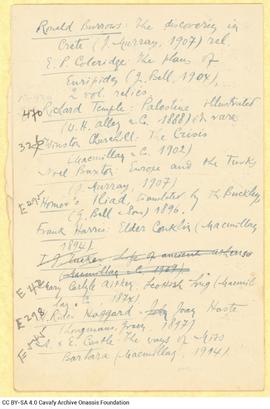 Ronald Burrows: The discoveries in
Crete (J. Murray, 1907) rel.
E. P. Coleridge: The Plays of
Euripides (G. Bell, 1904,
2 vol. relics
470 Richard Temple: Palestine Illustrated
(W. H. Allen & C. 1888) rare
326 Winston Churchill: The Crisis
(Macmillan & C. 1902)
Noel Buxton: Europe and the Turks
(J. Murray, 1907)
Homer's Iliad, translated by Th. Buckley
(G. Bell & Sons) 1896.
Frank Harris: Elder Conklin (Macmillan
1894)
T. G. Tucker: Life of ancient Athens
(Macmillan & C. 1907)
Mary Carlyle Aitken: Scottish Song (Macmil
lan & C. 1874)
E 298 Rider Haggard: Joan Haste
(Longmans, 1897)
A. & E. Castle: The ways of Miss
Barbara (Macmillan, 1914)
CC BY-SA 4.0 Cavafy Archive Onassis Foundation